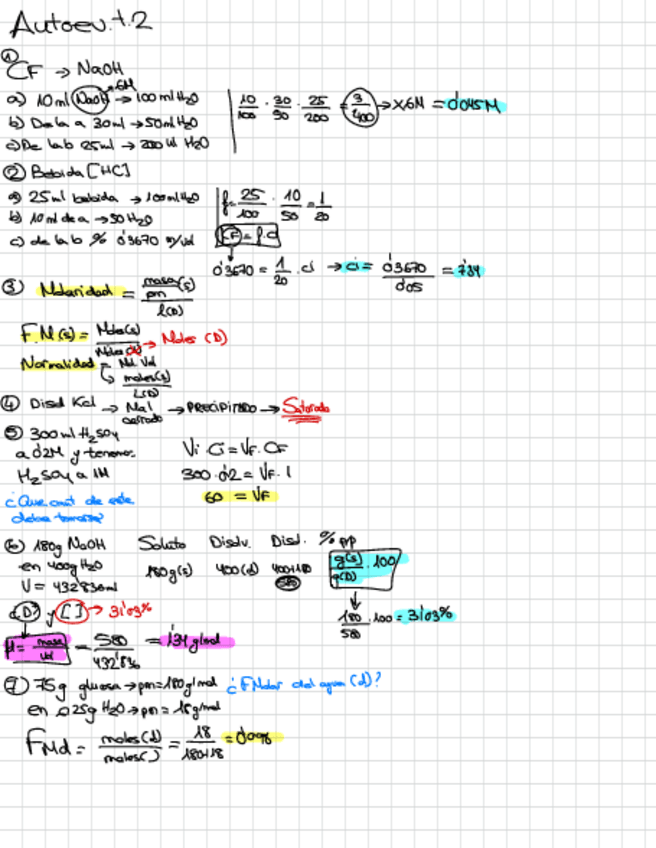 Autoev. t.2
①
CF → NaOH
6M
a) 10 ml NaOH → 100 ml H2O
b) De la a 30 ml → 50 ml H2O
c) De la b 25 ml → 200 ml H2O
10/100 · 30/50 · 25/200 = 3/400 → x 6M = 0'045M
② Bebida [HC]
a) 25 ml bebida → 100 ml H2O
b) 10 ml de a → 50 H2O
c) de la b % 0'3670 m/vol
f = 25/100 · 10/50 = 1/20
CF = f · ci
0'3670 = 1/20 · ci → ci = 0'3670/0'05 = 7'34
③ Molaridad = masa(s)/pm / L(D)
F.M.(s) = Moles(s)/Moles → Moles (D)
Normalidad = M. Val
moles(s)/L(D)
④ Disol KCl → Mal → PRECIPITADO → Saturada
cerrado
⑤ 300 ml H2SO4
a 0'2M y tenemos
H2SO4 a 1M
¿Que cant de este
debes tomar?
Vi · Ci = VF · CF
300 · 0'2 = VF · 1
60 = VF
⑥ 180g NaOH
en 400g H2O
V = 432'836 ml
Soluto Disolv. Disol. % p/p
180g(s) 400(d) 400+180
580
g(s)/g(D) · 100
180/580 · 100 = 31'03%
¿D? y [ ] → 31'03%
masa/vol = 580/432'836 = 1'34 g/ml
⑦ 75g glucosa → pm = 180 g/mol ¿FMolar del agua (d)?
en 025g H2O → pm = 18 g/mol
FMd = moles(d)/moles( ) = 18/180+18